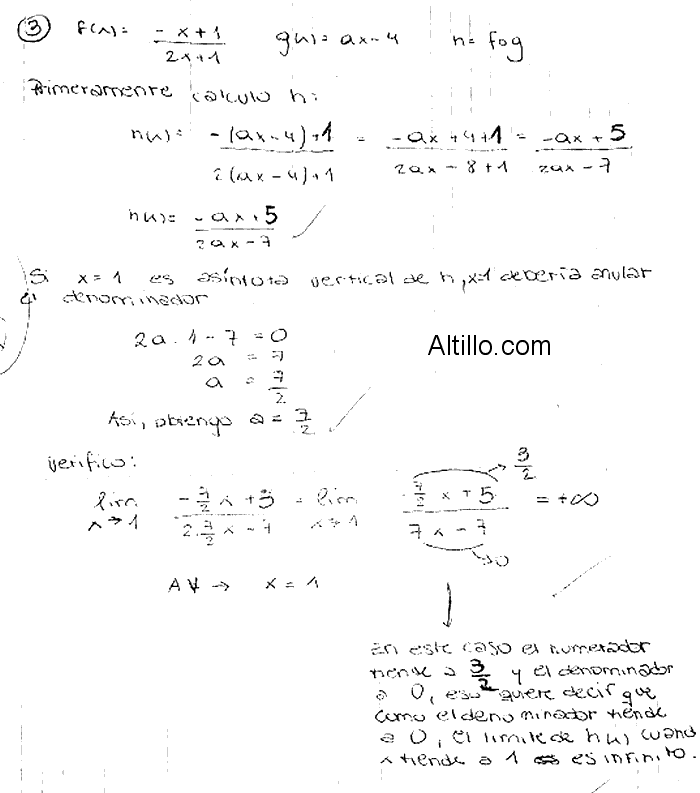 ③ f(x) = (-x+1)/(2x+1)   g(x) = ax-4   h = fog
Primeramente calculo h:
h(x) = (-(ax-4)+1)/(2(ax-4)+1) = (-ax+4+1)/(2ax-8+1) = (-ax+5)/(2ax-7)
h(x) = (-ax+5)/(2ax-7)
Si x=1 es asíntota vertical de h, x=1 debería anular
el denominador
2a.1-7=0
2a = 7
a = 7/2
Altillo.com
Así, obtengo a = 7/2
Verifico:
lim x→1 (-7/2 x + 5)/(2.7/2 x - 7) = lim x→1 (-7/2 x + 5)/(7x-7) = +∞
3/2
0
AV → x = 1
En este caso el numerador
tiende a 3/2 y el denominador
a 0, eso quiere decir que
como el denominador tiende
a 0, el limite de h(x) cuand
x tiende a 1 es infinito.